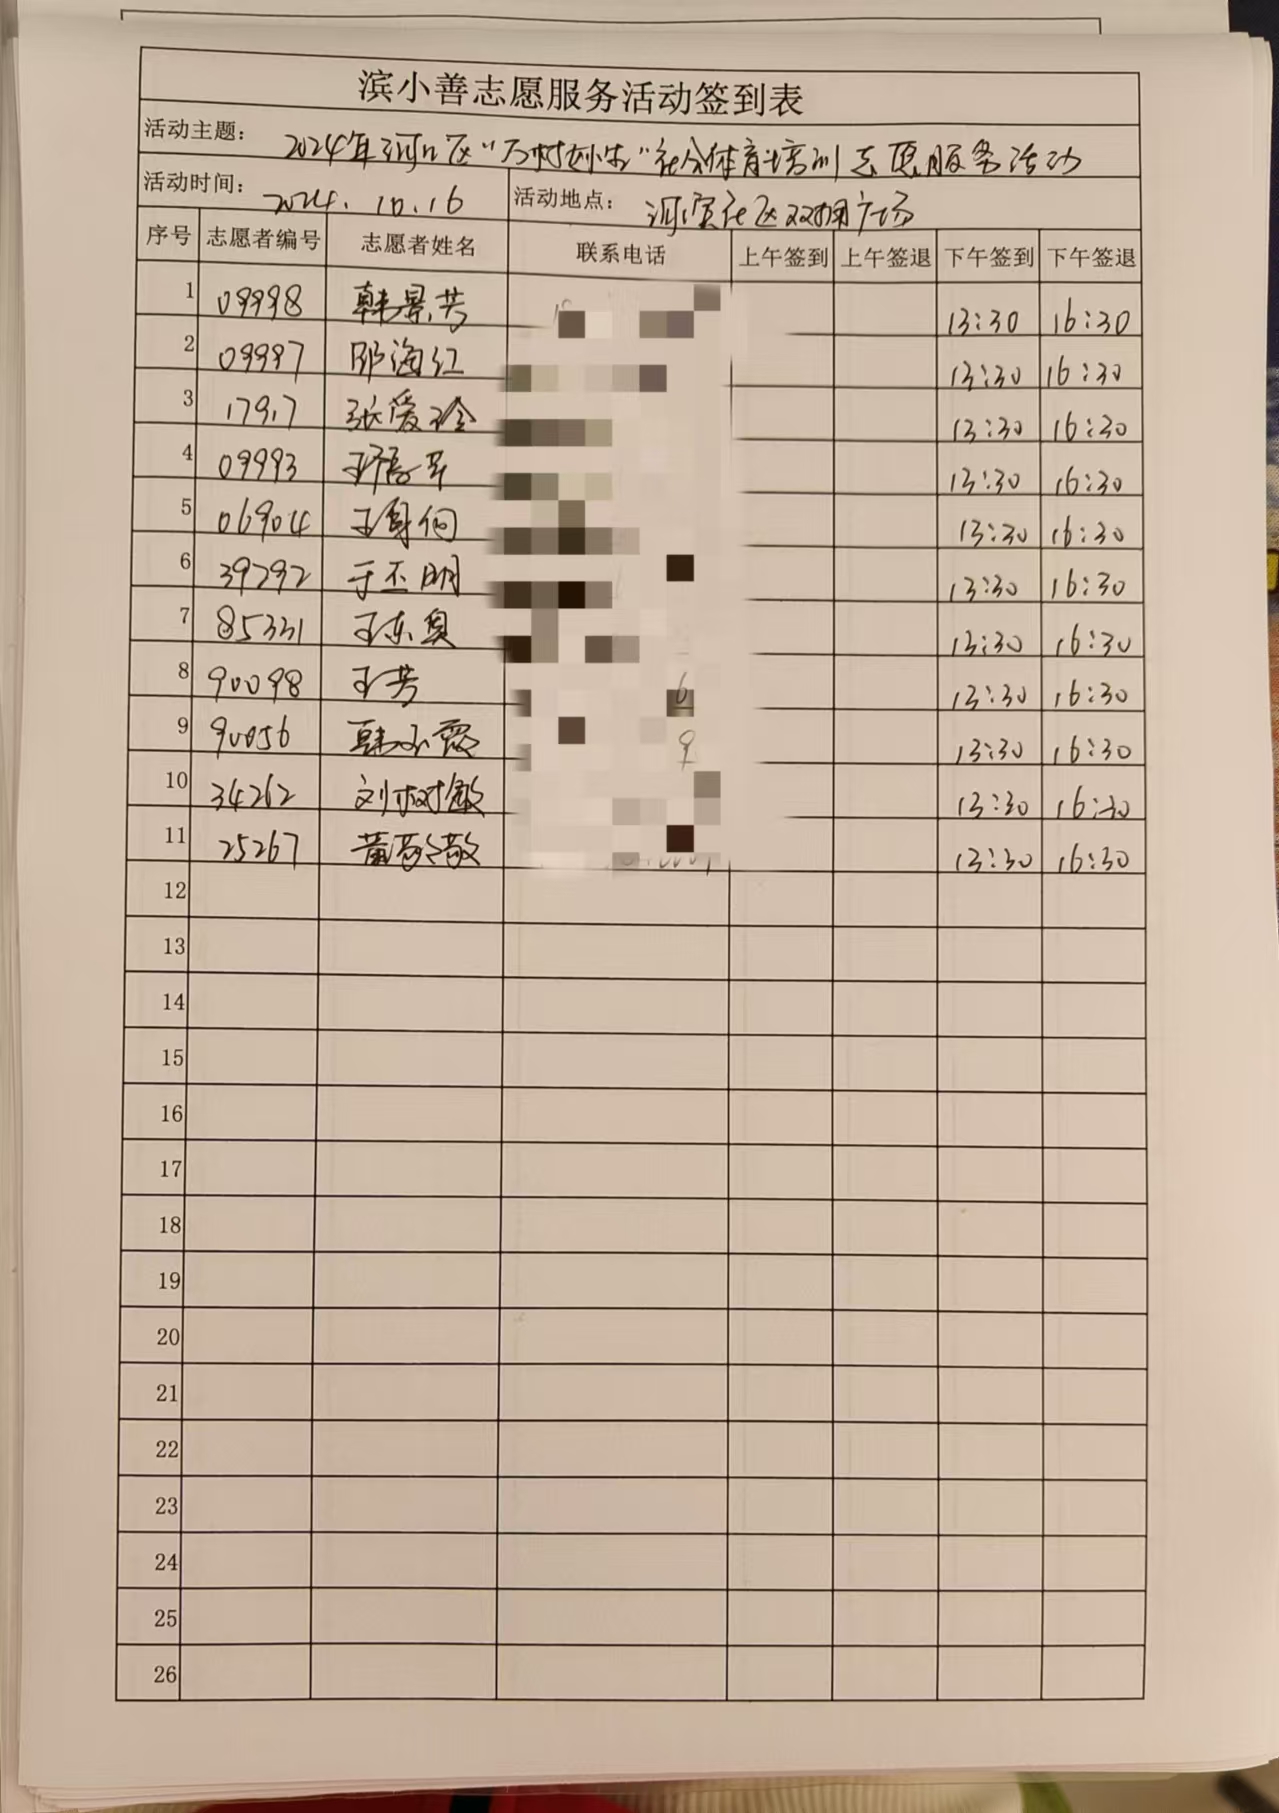 滨小善志愿服务活动签到表
活动主题： 2024年河口区"万村划小"社会体育培训志愿服务活动
活动时间： 2024.10.16 活动地点： 河滨社区双拥广场
序号 志愿者编号 志愿者姓名 联系电话 上午签到 上午签退 下午签到 下午签退
1 09998 韩景芳 13:30 16:30
2 09997 邵海红 13:30 16:30
3 17917 张爱玲 13:30 16:30
4 09993 13:30 16:30
5 06904 13:30 16:30
6 39292 于丕明 13:30 16:30
7 85331 王东奥 13:30 16:30
8 90098 王芳 6 13:30 16:30
9 90056 韩玉霞 9 13:30 16:30
10 34262 刘树敏 13:30 16:30
11 25267 13:30 16:30
12
13
14
15
16
17
18
19
20
21
22
23
24
25
26